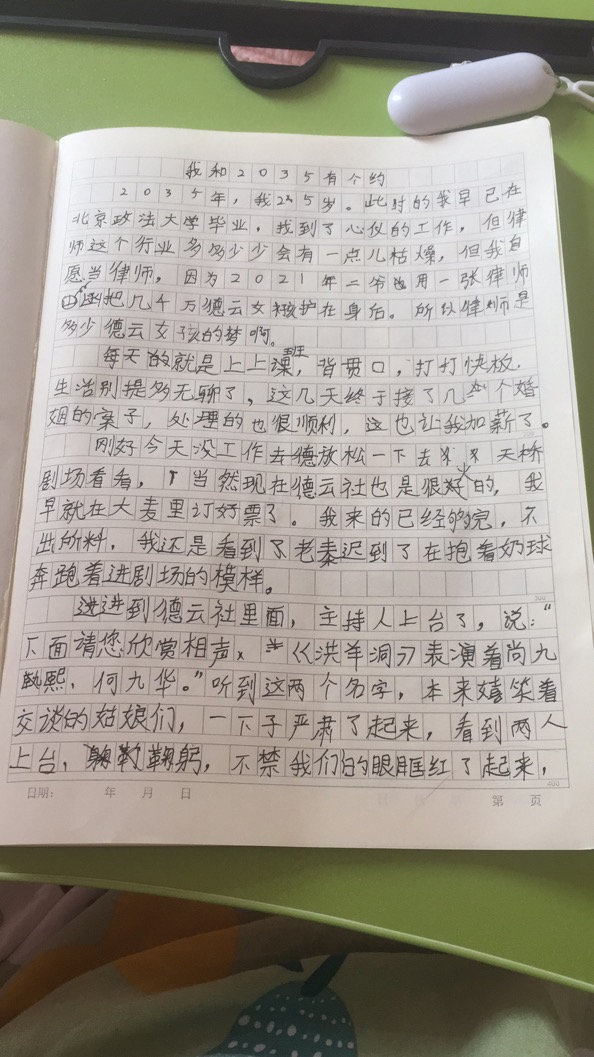 我和2035有个约
2035年，我25岁。此时的我早已在
北京政法大学毕业，找到了心仪的工作，但律
师这个行业多多少少会有一点儿枯燥，但我自
愿当律师，因为2021年二爷用一张律师
函把几千万德云女孩护在身后。所以律师是
多少德云女孩的梦啊。
每天的就是上上班，背贯口，打打快板，
生活别提多无聊了，这几天终于接了几个婚
姻的案子，处理的也很顺利，这也让我加薪了。
刚好今天没工作去放松一下去天桥
剧场看看，当然现在德云社也是很火的，我
早就在大麦里订好票了。我来的已经够晚，不
出所料，我还是看到了老秦迟到了在抱着奶球
奔跑着进剧场的模样。
进到德云社里面，主持人上台了，说：“
下面请您欣赏相声、《洪羊洞》表演着尚九
熙、何九华。”听到这两个名字，本来嬉笑着
交谈的姑娘们，一下子严肃了起来，看到两人
上台、鞠躬，不禁我们的眼眶红了起来，
日期： 年 月 日 第 页